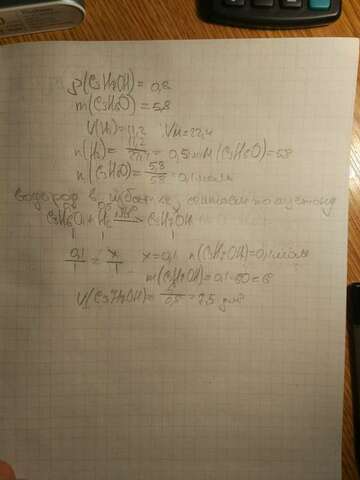 ρ(C3H7OH) = 0,8
m(C3H6O) = 5,8
V(H2) = 11,2 VM = 22,4
n(H2) = 11,2/22,4 = 0,5 моль M(C3H6O) = 58
n(C3H6O) = 5,8/58 = 0,1 моль
водород в избытке, считаем по ацетону
0,5
C3H6O + H2 → C3H7OH
1 1 1
0,1/1 = x/1 x = 0,1 n(C3H7OH) = 0,1 моль
m(C3H7OH) = 0,1·60 = 6
V(C3H7OH) = 6/0,8 = 7,5